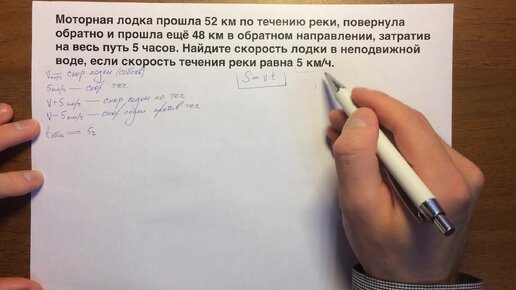 Моторная лодка прошла 52 км по течению реки, повернула
обратно и прошла ещё 48 км в обратном направлении, затратив
на весь путь 5 часов. Найдите скорость лодки в неподвижной
воде, если скорость течения реки равна 5 км/ч.
V км/ч скор лодки (собств)
S = v t
5 км/ч — скор теч
V + 5 км/ч — скор лодки по теч
V − 5 км/ч — скор лодки против теч
t общ = 5ч